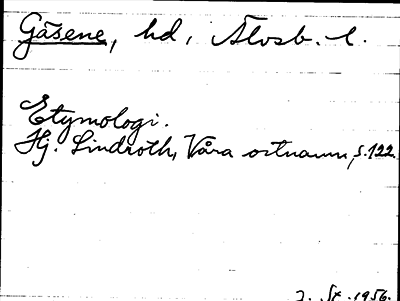 Gäsene, hd, Älvsb. l.
Etymologi.
Hj. Lindroth, Våra ortnamn, s. 122
J. St. 1956.